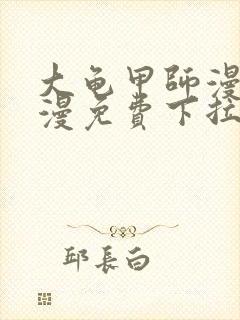 大龟甲師漫
漫免費下拉
邱長白